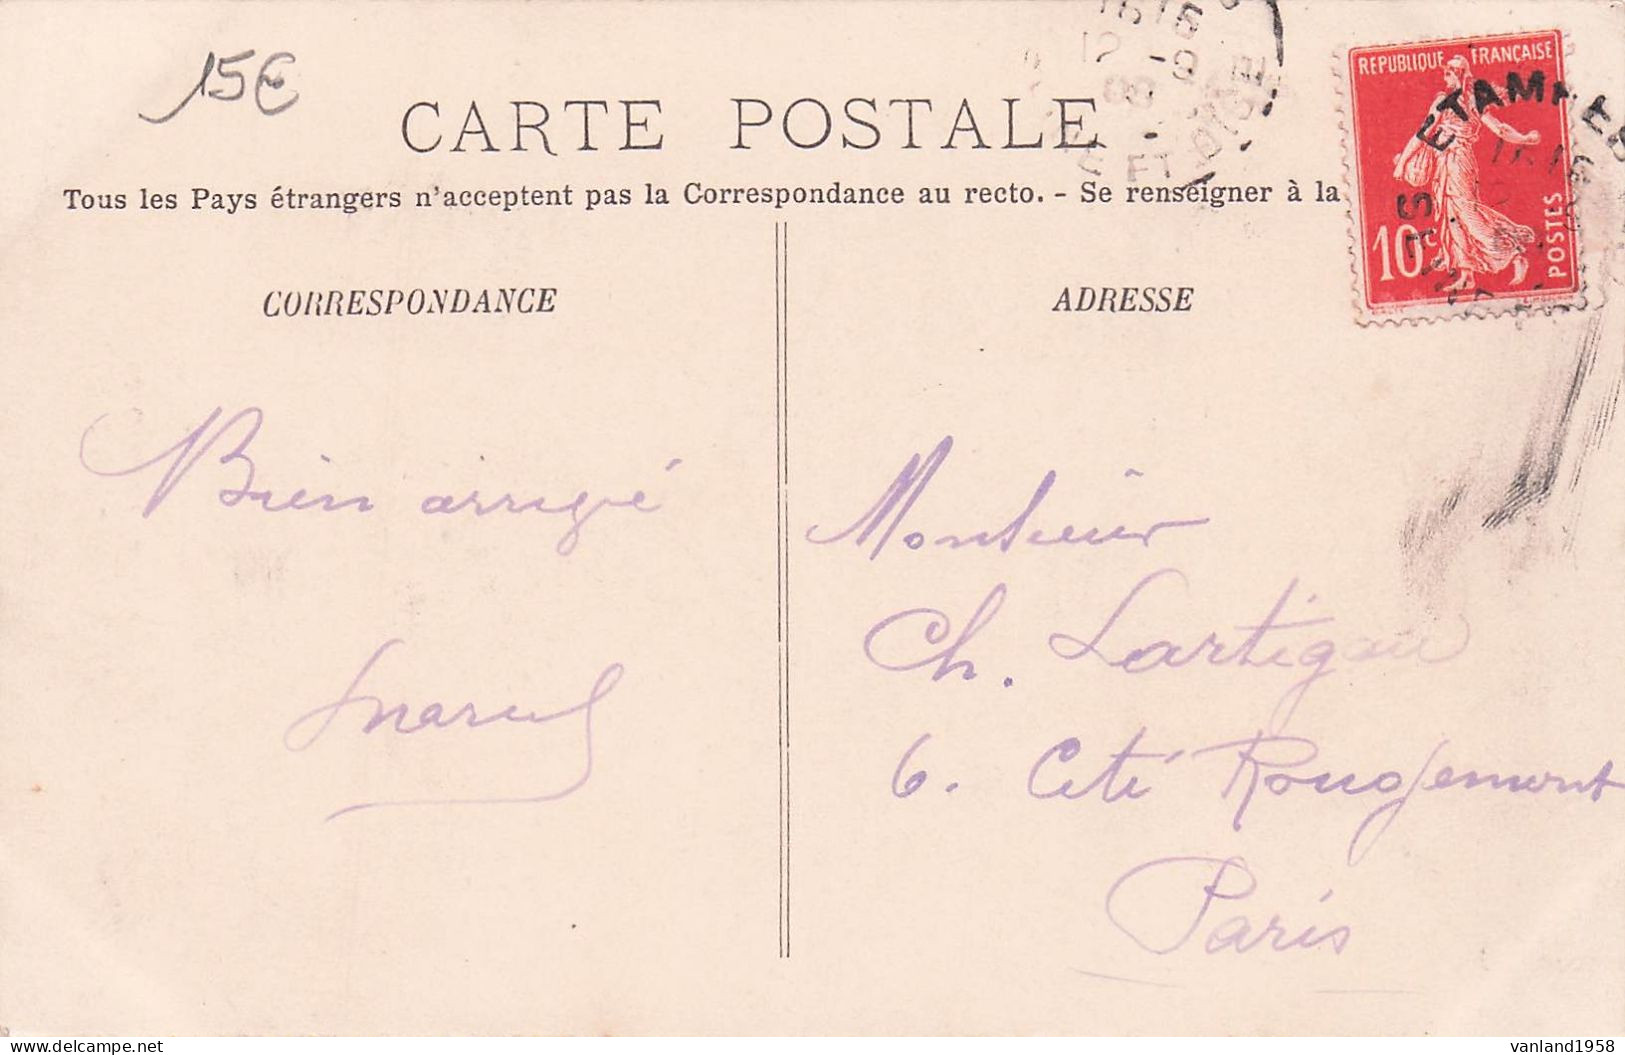 15€
CARTE POSTALE
Tous les Pays étrangers n'acceptent pas la Correspondance au recto. - Se renseigner à la
REPUBLIQUE FRANÇAISE
10c
POSTES
ETAMPES
CORRESPONDANCE
ADRESSE
Bien arrivé
Marcel
Monsieur
Ch. Lartigau
6. Cité Rougemont
Paris
vanland1958